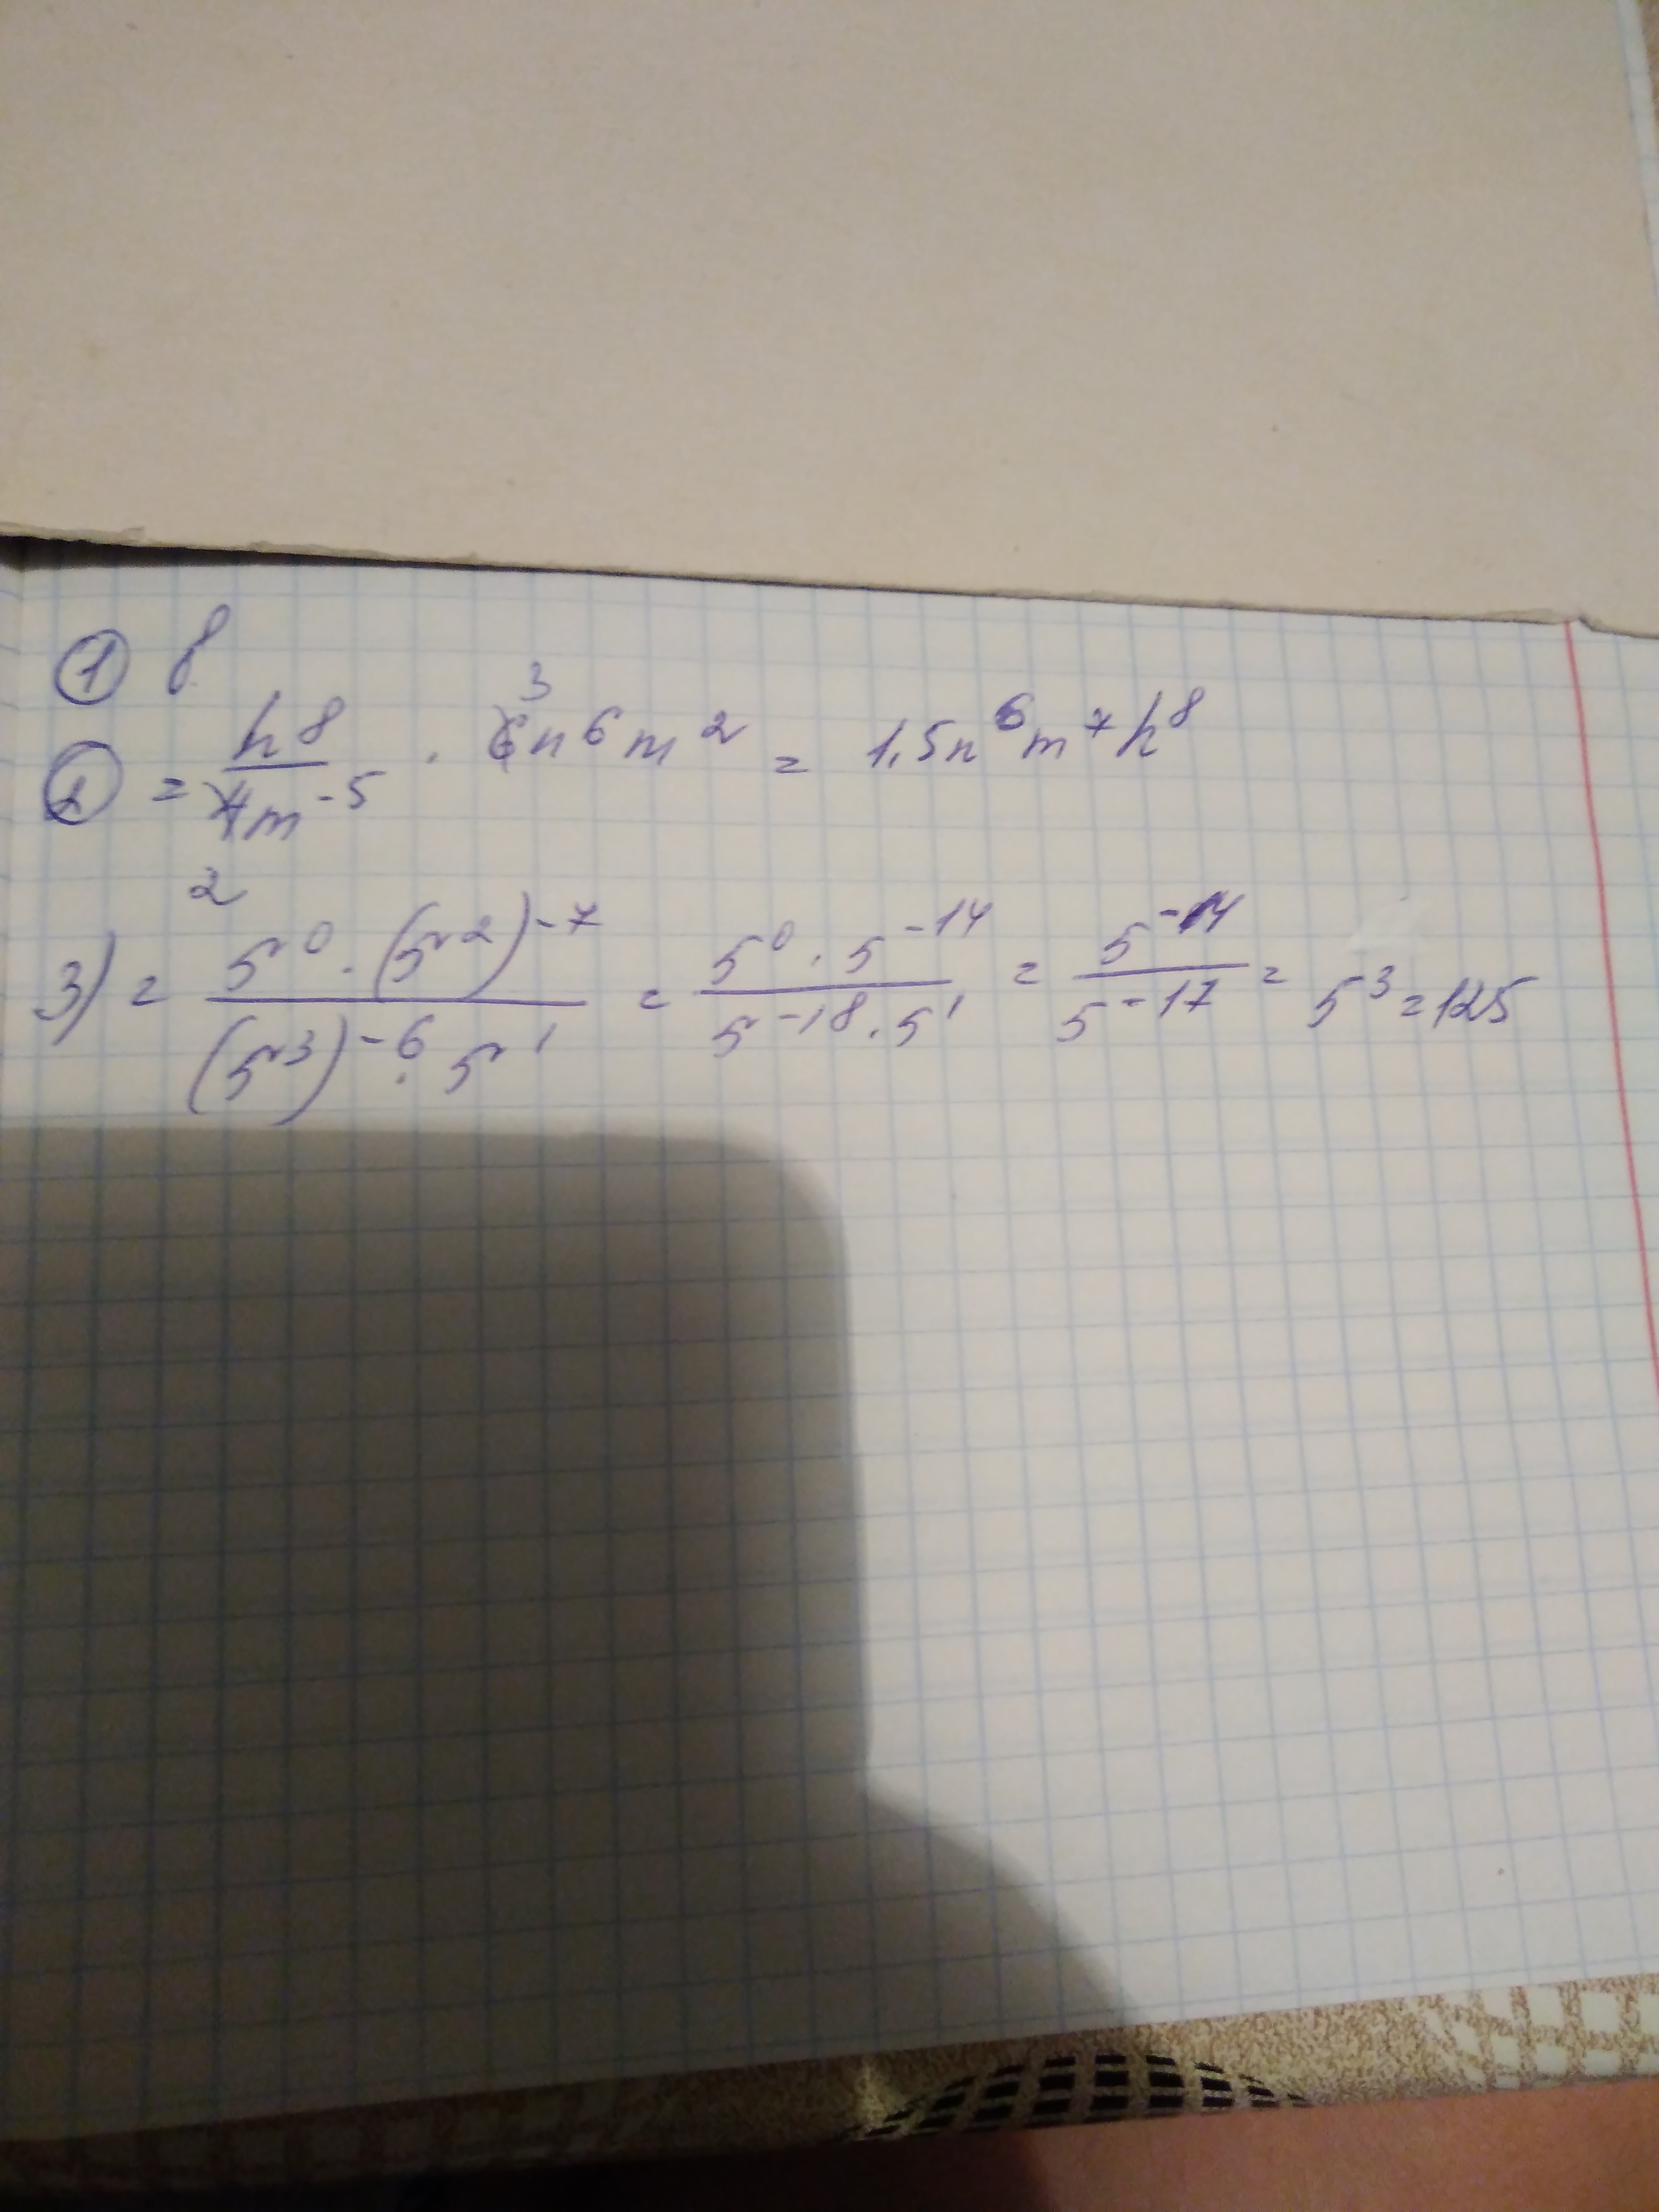 ① 8
② = h⁸/4m⁻⁵ · 6n⁶m² = 1,5n⁶m⁷h⁸
3
2
3) = 5⁰·(5²)⁻⁷/(5³)⁻⁶·5¹ = 5⁰·5⁻¹⁴/5⁻¹⁸·5¹ = 5⁻¹⁴/5⁻¹⁷ = 5³=125